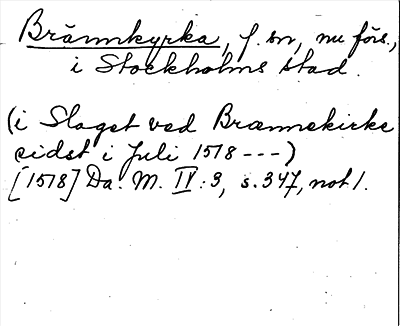 Brännkyrka, f. sn, nu förs.,
i Stockholms stad.
(i Slaget ved Brænnekirke
sidst i Juli 1518 ---)
[1518] Da. M. IV: 3, s. 347, not 1.